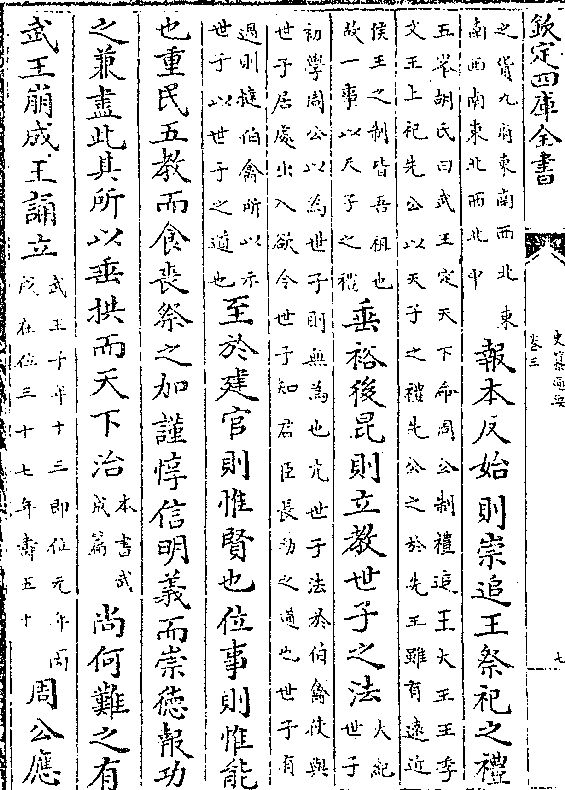 欽定四庫全書
史纂通要
卷三
七
之貨九府東南西北東
南西南東北西北中
報本反始則崇追王祭祀之禮
五峯胡氏曰武王定天下命周公制禮追王大王王季
文王上祀先公以天子之禮先公之於先王雖有遠近
侯王之制皆吾祖也
故一事以天子之禮
垂裕後昆則立教世子之法
大紀
世子
初學周公以為世子則無為也亢世子法於伯禽使與
世子居處出入欲令世子知君臣長幼之道也世子有
過則撻伯禽所以示
世子以世子之道也
至於建官則惟賢也位事則惟能
也重民五教而食喪祭之加謹惇信明義而崇德報功
之兼盡此其所以垂拱而天下治
本書武
成篇
尚何難之有
武王崩成王誦立
武王子年十三即位元年丙
戌在位三十七年壽五十
周公應